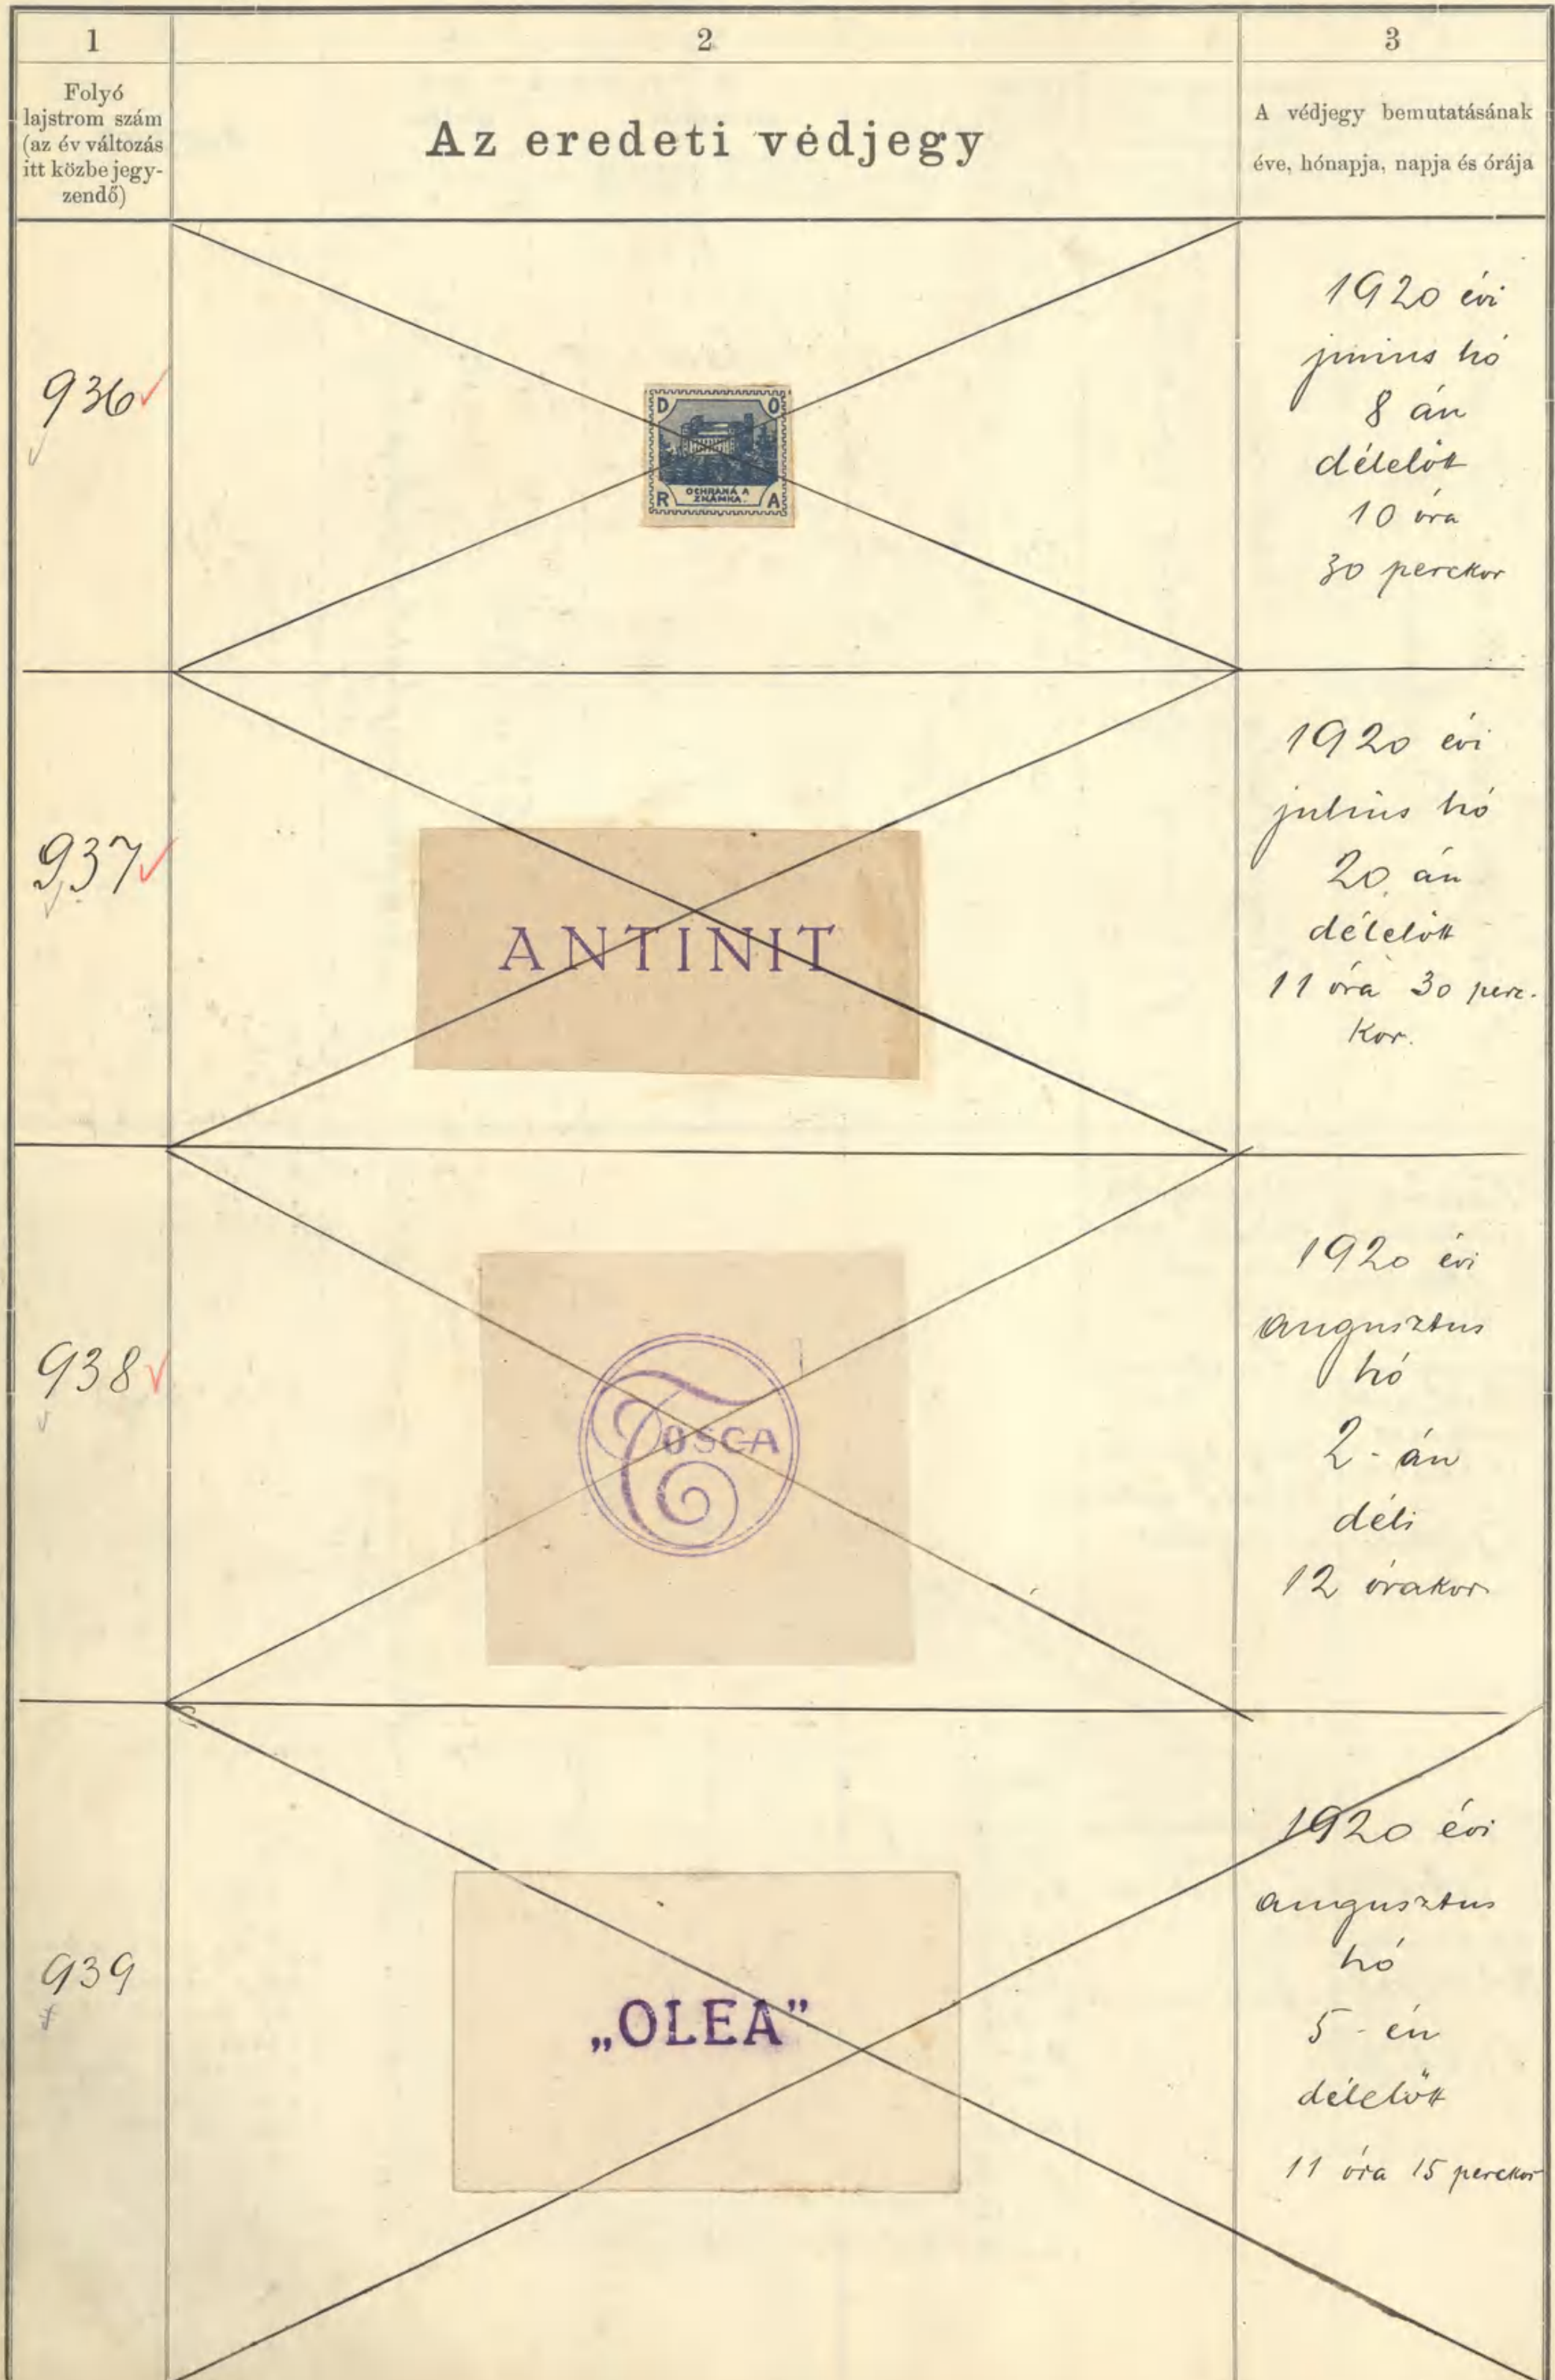 1
2
3
Folyó
lajstrom szám
(az év változás
itt közbe jegy-
zendő)
Az eredeti védjegy
A védjegy bemutatásának
éve, hónapja, napja és órája
936
D O
OCHRANÁ A
ZNÁMKA.
R A
1920 évi
junius hó
8 án
délelőtt
10 óra
30 perckor
937
ANTINIT
1920 évi
julius hó
20 án
délelőtt
11 óra 30 perc-
kor.
938
TOSCA
1920 évi
augusztus
hó
2-án
déli
12 órakor
939
„OLEA”
1920 évi
augusztus
hó
5-én
délelőtt
11 óra 15 perckor